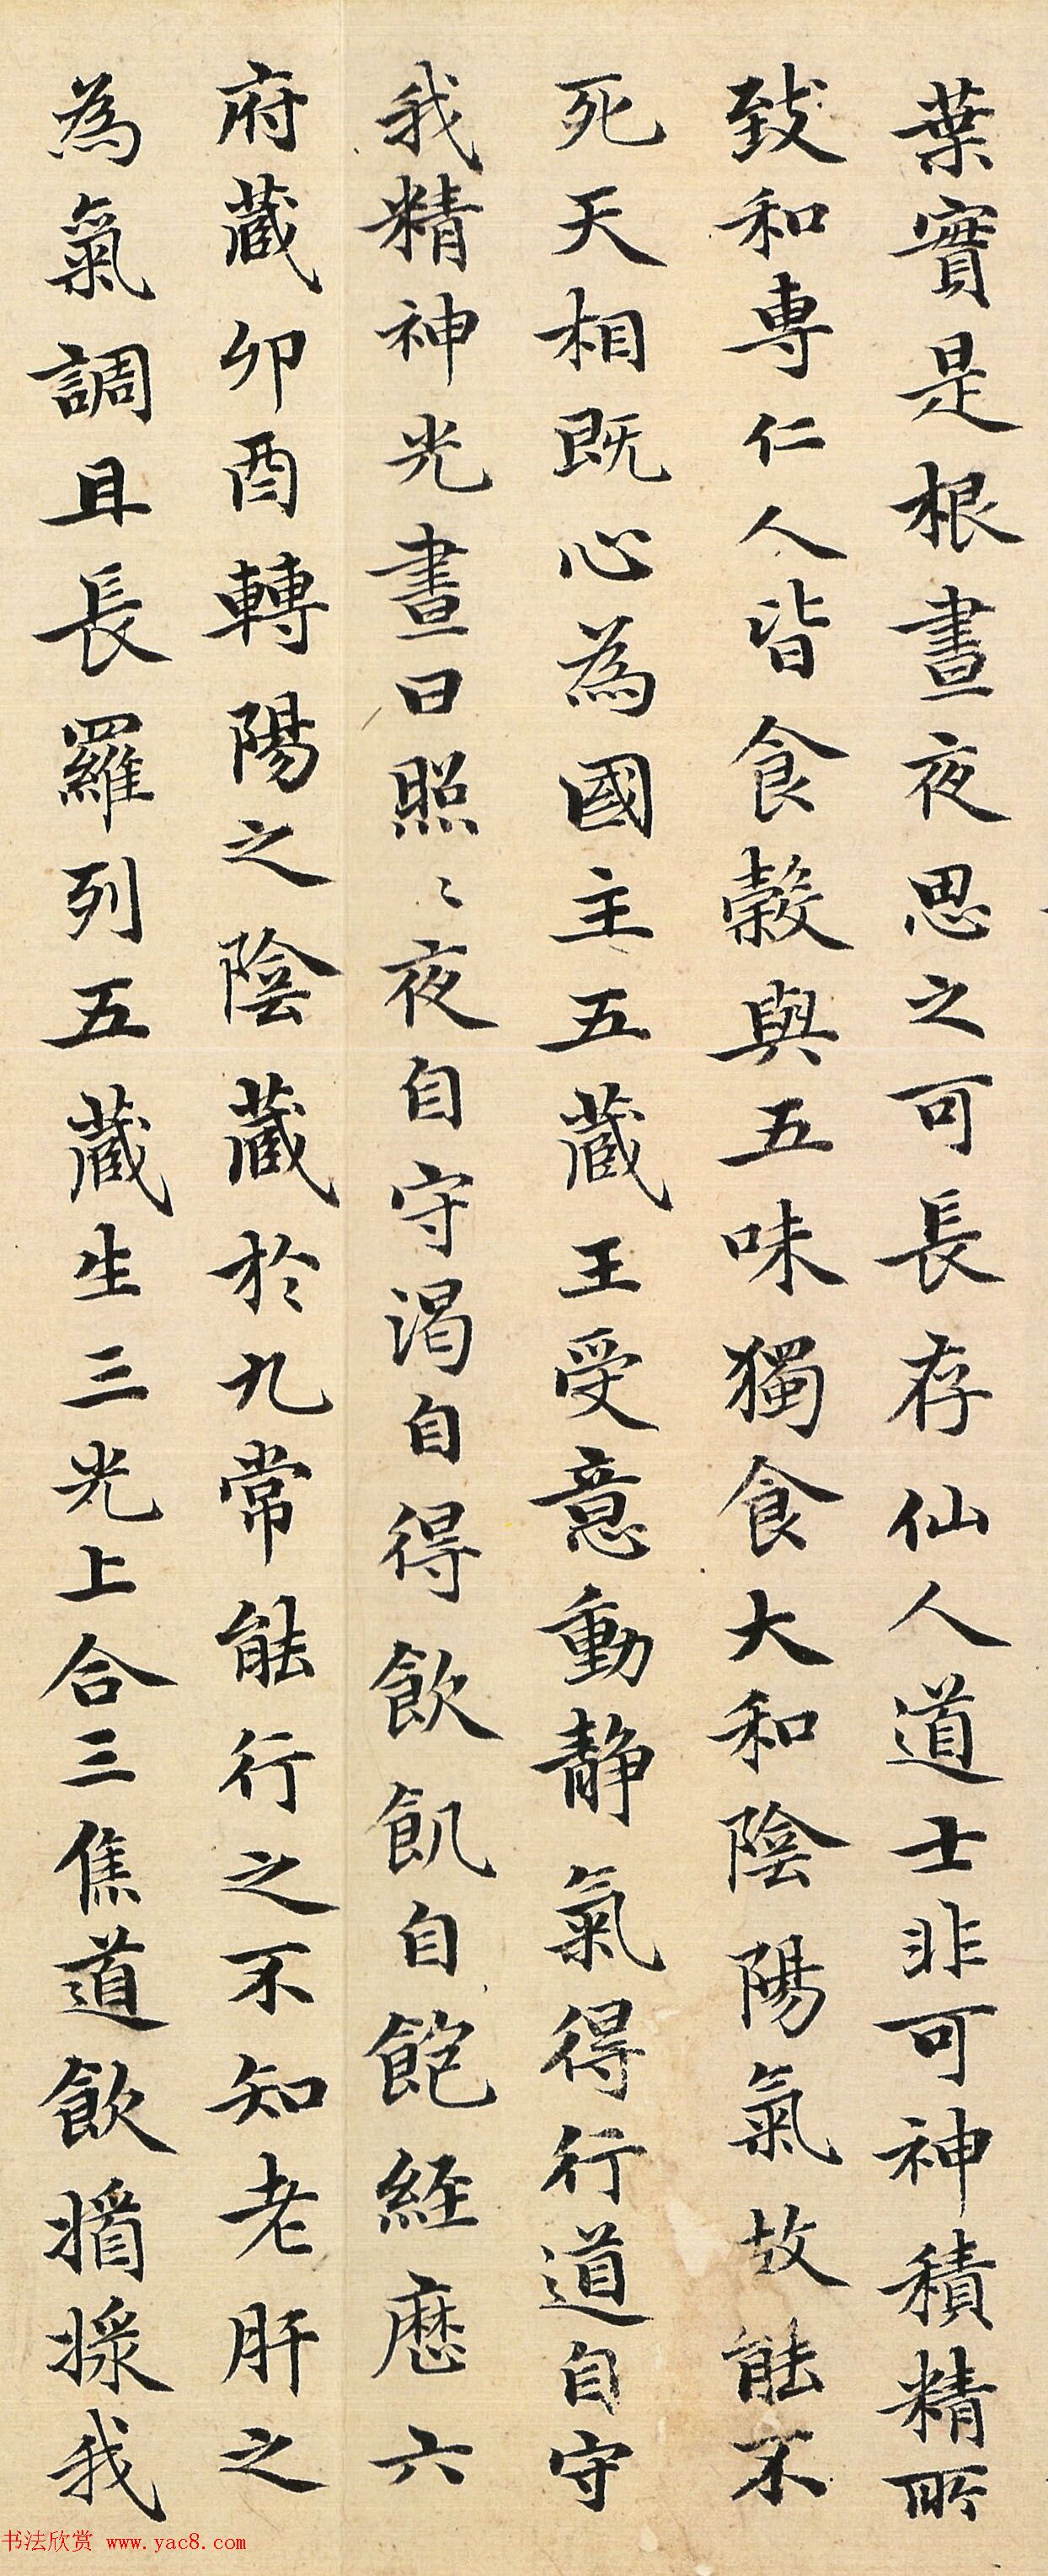 葉實是根晝夜思之可長存仙人道士非可神積精所
致和専仁人皆食穀與五味獨食大和陰陽氣故能不
死天相既心為國主五藏王受意動静氣得行道自守
我精神光晝日照々夜自守渇自得飲飢自飽經歴六
府藏卯酉轉陽之陰藏於九常能行之不知老肝之
為氣調且長羅列五藏生三光上合三焦道飲漿我
书法欣赏 www.yac8.com